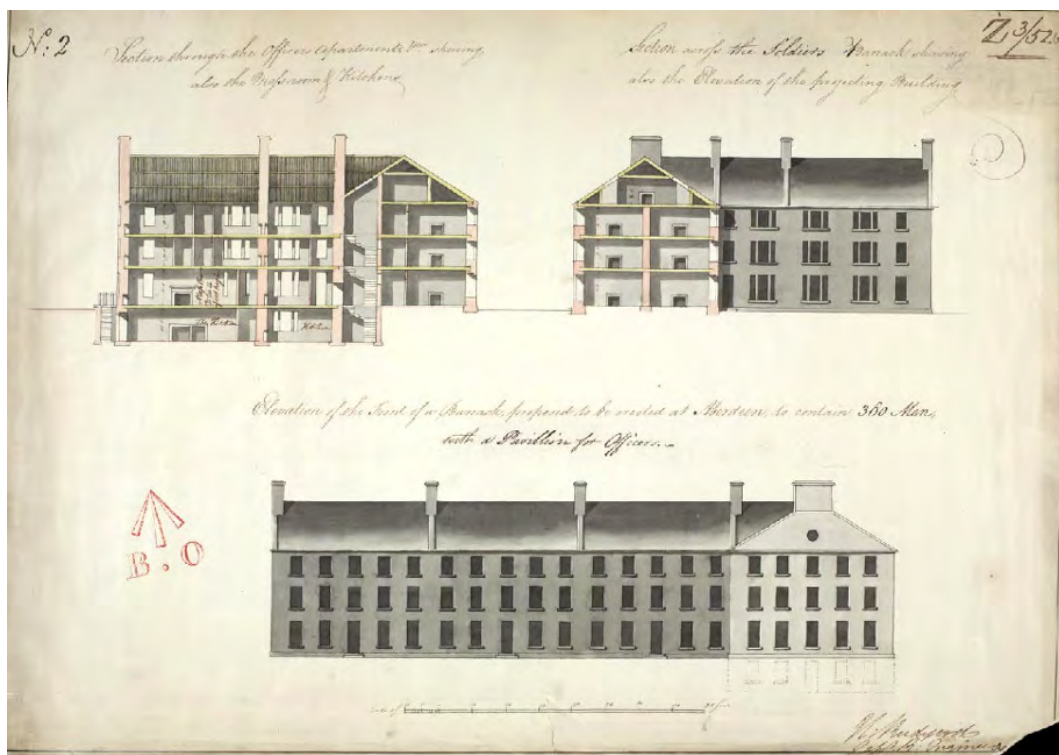 Nº: 2
Z 3/52
Section through the Officers Apartments &c. shewing
also the Mess room & Kitchens
Section across the Soldiers Barrack shewing
also the Elevation of the projecting Building
Elevation of the Front of a Barrack, proposed to be erected at Aberdeen, to contain 360 Men,
with a Pavillion for Officers.
B.O